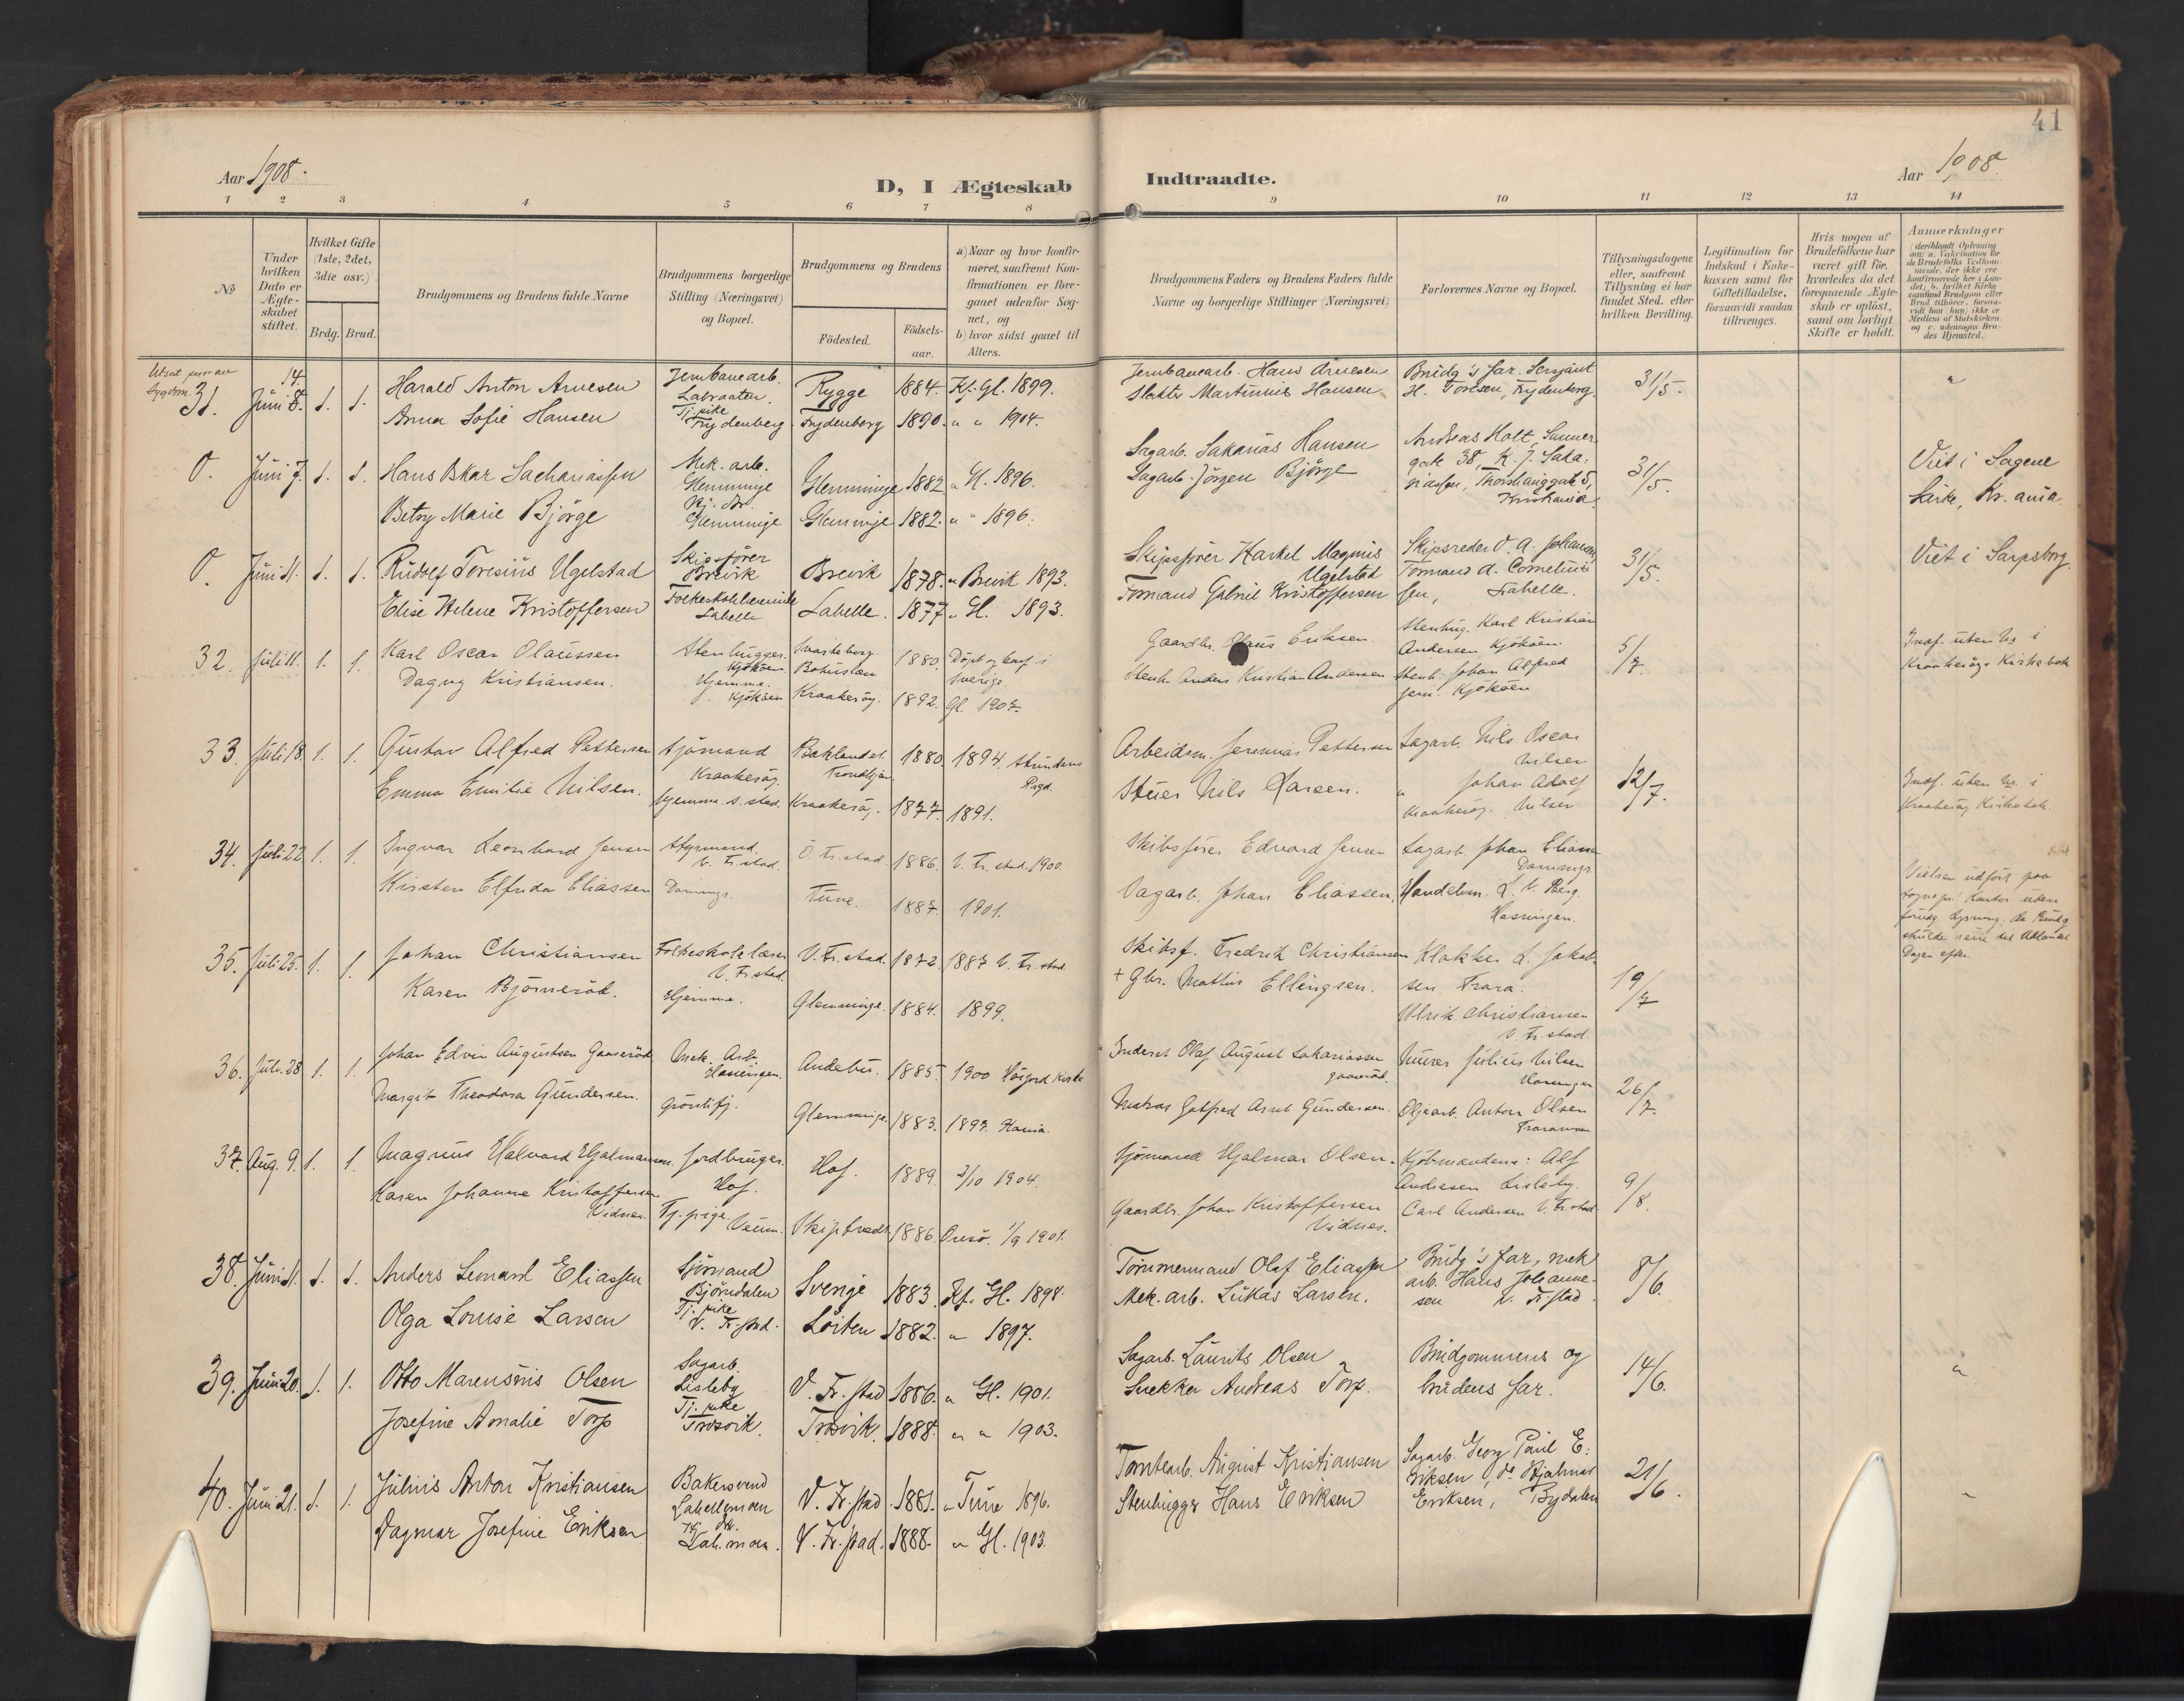 41
Aar 1908.
D, I Ægteskab
Indtraadte.
Aar 1908
1 2 3 4 5 6 7 8 9 10 11 12 13 14
No
Under hvilken Dato er Ægteskabet stiftet.
Hvilket Gifte (1ste, 2det, 3die osv.)
Brdg. Brud.
Brudgommens og Brudens fulde Navne
Brudgommens borgerlige Stilling (Næringsvei) og Bopæl.
Brudgommens og Brudens
Födested.
Födsels-aar.
a) Naar og hvor konfirmeret, saafremt Konfirmationen er foregaaet udenfor Sognet, og
b) hvor sidst gaaet til Alters.
Brudgommens Faders og Brudens Faders fulde Navne og borgerlige Stillinger (Næringsvei)
Forlovernes Navne og Bopæl.
Tillysningsdagene eller, saafremt Tillysning ei har fundet Sted, efter hvilken Bevilling.
Legitimation for Indskud i Enkekassen samt for Giftetilladelse, forsaavidt saadan tiltrænges.
Hvis nogen af Brudefolkene har været gift för, hvorledes da det foregaaende Ægteskab er oplöst, samt om lovligt Skifte er holdt.
Anmærkninger
31. 14. Juni 8. 1. 1. Harald Anton Arnesen Jernbanearb. Labraaten. Rygge 1884. Kf. Gl. 1899. Jernbanearb. Hans Arnesen Brudg's far. Sersjant 31/5.
Anna Sofie Hansen Tj. pike Trydenberg Frydenberg 1890. " " 1904. Slakter Martinius Hansen H. Toresen, Frydenberg.
0. Juni 7. 1. 1. Hans Oskar Sachariassen Mek. arb. Glemminge Glemminge 1882 " Gl. 1896. Sagarb. Sakarias Hansen Andreas Holt, Sanner gate 38, K. J. Saka- 31/5. Viet i Sagene
Betsy Marie Björge Glemminge Glemminge 1882. " " 1896. Sagarb. Jörgen Björge riassen, Kristiania. Kirke, Kr.ania.
0. Juni 11. 1. 1. Rudolf Toresius Ugelstad Skipsförer Brevik Brevik 1878. " Brevik 1893. Skipsförer Harkel Magnus Ugelstad Skipsreder O. A. Johansen, 31/5. Viet i Sarpsborg.
Elise Helene Kristoffersen Folkeskolelærerinde Labelle Labelle. 1877. " Gl. 1893. Tomand Gabriel Kristoffersen Tomand A. Cornelius sen, Labelle.
32. Juli 11. 1. 1. Karl Oscar Olaussen Stenhugger. Kjököen Svarteborg. Bohuslen 1880. Döpt og konf. i Sverige. Gaardbr. Olaus Eriksen. Stenhug. Karl Kristian Andersen Kjököen 5/7. Indf. uten No i
Dagny Kristiansen. Hjemme. Kjököen Kraakeröy. 1892. Gl. 1907. Stenh. Anders Kristian Andersen Stenh. Johan Alfred Jern. Kjököen Kraakeröy Kirkebok
33. Juli 18. 1. 1. Gustav Alfred Pettersen Sjömand Kraakeröy. Baklandet. Trondhjem. 1880. 1894. Strindens Prgd. Arbeidsm. Jeremias Pettersen Sagarb. Nils Oscar Nilsen 12/7. Indf. uten No. i
Emma Emilie Nilsen. Hjemme. s. stad. Kraakeröy. 1877. 1891. Stuer Nils Larsen. " Johan Adolf Nilsen Kraakeröy. Kraakeröy Kirkebok.
34. Juli 22. 1. 1. Ingvar Leonhard Jensen Styrmand. V. Fr.stad. Ö. Fr.stad 1886. V. Fr.stad. 1900. Skibsförer Edvard Jensen Sagarb. Johan Eliassen
Kirsten Elfrida Eliassen Tune. 1887. 1901. Sagarb. Johan Eliassen. Handelsm. L. V. Berg. Hassingen.
35. Juli 25. 1. 1. Johan Christiansen Folkeskolelærer V. Fr.stad. V. Fr.stad. 1872. 1887 V. Fr.stad. Skibsf. Fredrik Christiansen Klokker L. Jakobsen, Trara. 19/7
Karen Björneröd. Hjemme. Glemminge. 1884. 1899. + Gbr. Mathias Ellingsen. Ulrik Christiansen V. Fr.stad
36. Juli 28 1. 1. Johan Edvin Augustsen Gaaseröd Mek. Arb. Hassingen. Andebu. 1885. 1900 Höyjord Kirke Inderst Olaf August Sakariassen Gaaseröd. Murer Julius Nilsen Hassingen 26/7.
Margit Theodora Gundersen. Grönlifj. Glemminge. 1883. 1897. Kania. Matros Gotfred Arnt Gundersen. Oljearb. Anton Olsen Traramoen
37. Aug. 9. 1. 1. Magnus Halvard Hjalmarsen. Jordbruger. Hof. Hof. 1889. 2/10 1904. Sjömand Hjalmar Olsen. Kjöbmandene: Alf Andresen Lisleby. 9/8.
Karen Johanne Kristoffersen Vidnes. Tj. pige Veum. Skiptvedt 1886. Onsö. 1/9 1901. Gaardbr. Johan Kristoffersen Vidnes. Carl Andersen V. Fr.stad
38. Juni 11. 1. 1. Anders Lenard Eliassen Sjömand Björndalen Sverige 1883. Kf. Gl. 1898. Tömmermand Olaf Eliassen Brudg's far, mek 8/6.
Olga Louise Larsen Tj. pike V. Fr.stad. Löiten 1882. " 1897. Mek. arb. Lukas Larsen. arb. Hans Johannesen V. Fr.stad.
39. Juni 20. 1. 1. Otto Marensius Olsen Sagarb. Lisleby V. Fr.stad 1886. " Gl. 1901. Sagarb. Laurits Olsen Brudgommens og 14/6.
Josefine Amalie Torp Tj. pike Trosvik. Trosvik. 1888. " " 1903. Snekker Andreas Torp. brudens far.
40. Juni 21. 1. 1. Julius Anton Kristiansen Bakersvend Labellemoen V. Fr.stad 1881. " Tune 1896. Tomtearb. August Kristiansen Sagarb. Georg Paul E: 21/6.
Dagmar Josefine Eriksen Lab.moen. V. Fr.stad. 1888. " Gl. 1903. Stenhugger Hans Eriksen Eriksen, do Hjalmar Eriksen, Bydalen